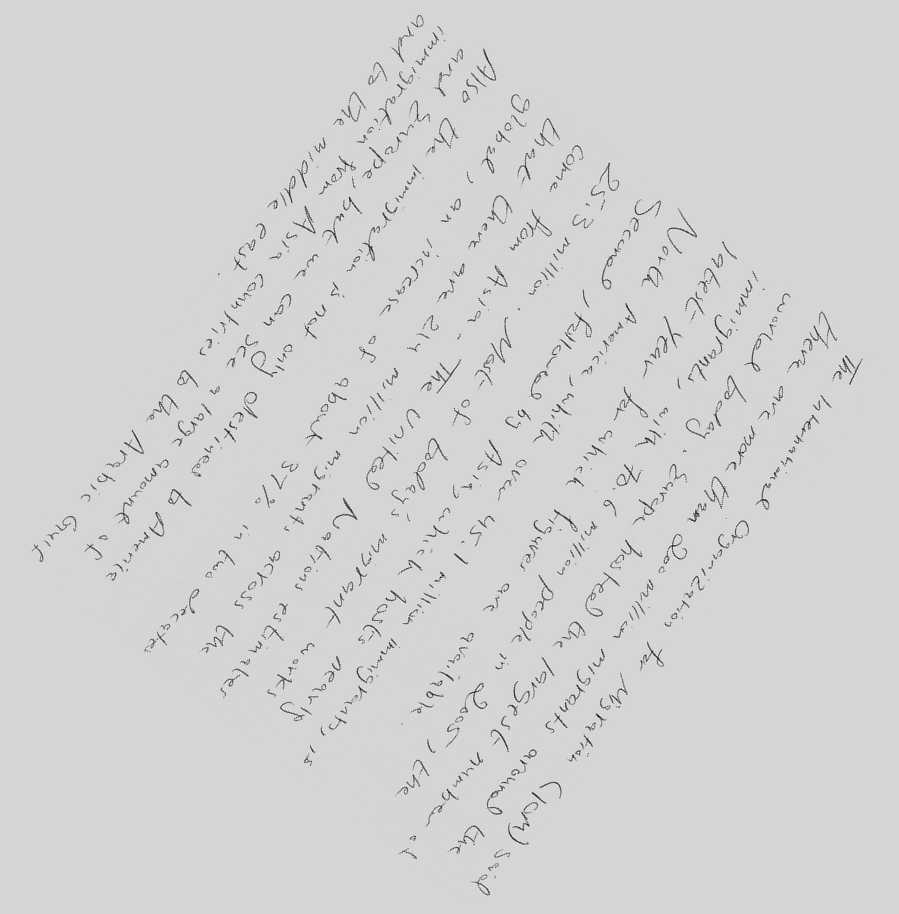 The International Organization for Migration (IOM) said
there are more than 200 million migrants around the
world today. Europe hosted the largest number of
immigrants, with 70.6 million people in 2005, the
latest year for which figures are available.
North America, with over 45.1 million immigrants, is
second, followed by Asia, which hosts nearly
25.3 million. Most of today's migrant works
come from Asia. The United Nations estimates
that there are 214 million migrants across the
global, an increase of about 37% in two decates
Also the immigration is not only destined to Americe
and Europe, but we can see a large amount of
immigration from Asia countries to the Arabic Gulf
and to the middle east.